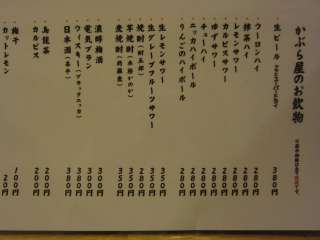 かぶら屋のお飲物
・生ビール 380円
・ウーロンハイ 280円
・抹茶ハイ 280円
・レモンサワー 280円
・カルピスサワー 280円
・ゆずサワー 280円
・チューハイ 280円
・ニッカハイボール 280円
・りんごのハイボール 280円
・生レモンサワー 350円
・生グレープフルーツサワー 350円
・焼酎 280円
・芋焼酎 350円
・麦焼酎 350円
・濃醇梅酒 300円
・電気ブラン 300円
・ウィスキー(ブラックニッカ) 380円
・日本酒 380円
・烏龍茶 200円
・カルピス 200円
・梅干 100円
・カットレモン 20円